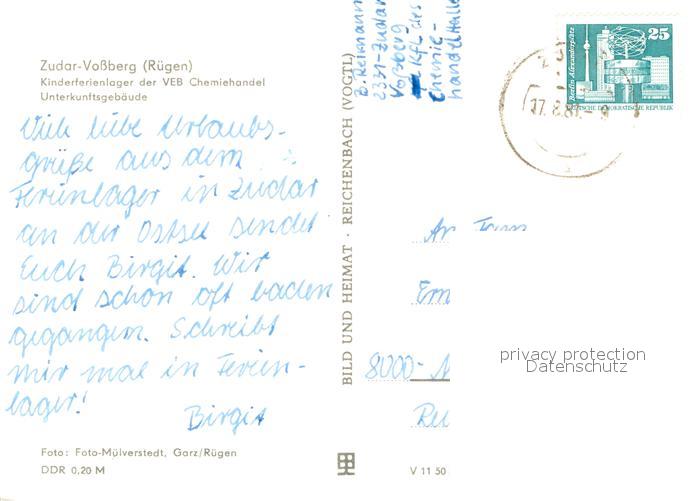 Zudar-Voßberg (Rügen)
Kinderferienlager der VEB Chemiehandel
Unterkunftsgebäude
Viele liebe Urlaubs-
grüße aus dem
Ferienlager in Zudar
an der Ostsee sendet
Euch Birgit. Wir
sind schon oft baden
gegangen. Schreibt
mir mal in Ferien-
lager!
Birgit
Foto: Foto-Mülverstedt, Garz/Rügen
DDR 0,20 M
BILD UND HEIMAT · REICHENBACH (VOGTL)
V 11 50
2331-Zudar
Voßberg
Kfl. des
Chemie-
handel Halle
25
Berlin, Alexanderplatz
DEUTSCHE DEMOKRATISCHE REPUBLIK
17.8.81
An Fam
Em
8000-
privacy protection
Datenschutz